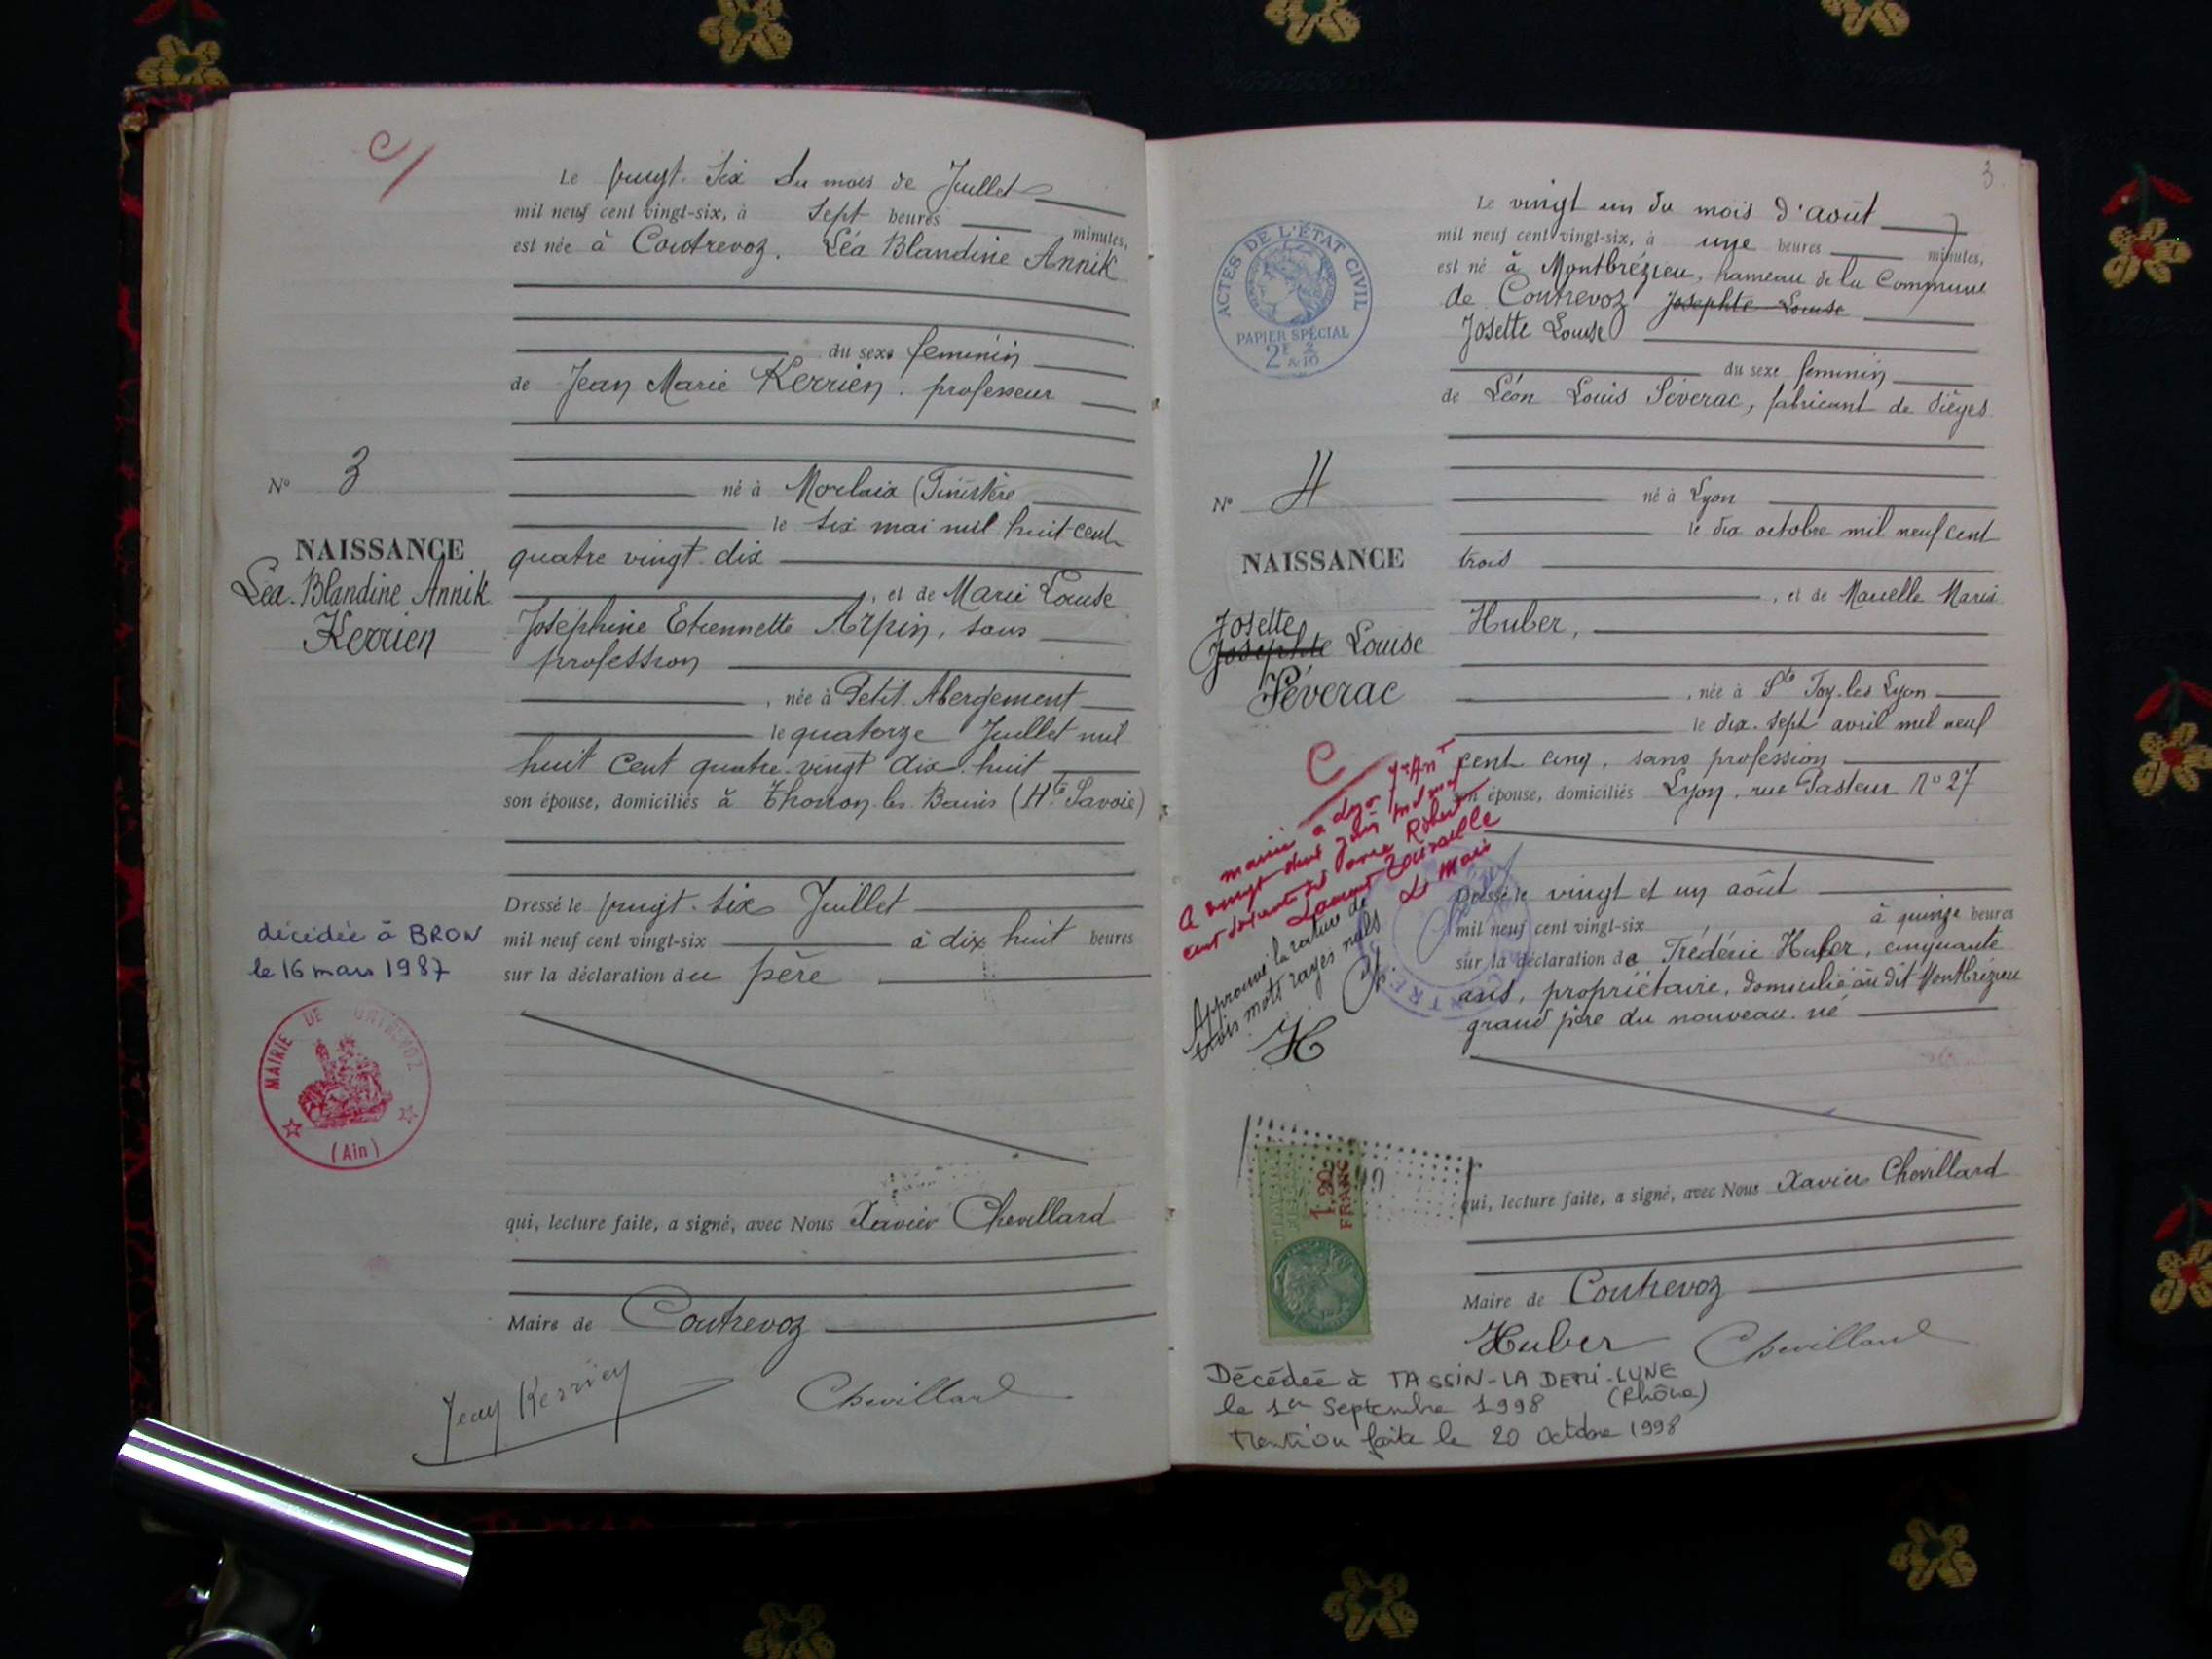 C/
Le vingt-six du mois de Juillet
mil neuf cent vingt-six, à sept heures minutes,
est née à Contrevoz. Léa Blandine Annik
du sexe feminin
de Jean Marie Kerrien. professeur
né à Morlaix (Finistère
le six mai mil huit cent
quatre vingt-dix
, et de Marie Louise
Joséphine Etiennette Arpin, sans
profession
, née à Petit Abergement
le quatorze Juillet mil
huit cent quatre-vingt dix-huit
son épouse, domiciliés à Thonon-les-Bains (Hte Savoie)
Dressé le vingt-six Juillet
mil neuf cent vingt-six à dix huit heures
sur la déclaration du père
qui, lecture faite, a signé, avec Nous Xavier Chevillard
Maire de Contrevoz
Jean Kerrien Chevillard
N° 3
NAISSANCE
Léa-Blandine Annik
Kerrien
décédée à BRON
le 16 mars 1987
MAIRIE DE CONTREVOZ
(Ain)
3.
Le vingt un du mois d'août
mil neuf cent vingt-six, à une heures minutes,
est né à Montbrézieu, hameau de la Commune
de Contrevoz Josephte Louise
Josette Louise
du sexe feminin
de Léon Louis Séverac, fabricant de sièges
né à Lyon
le dix octobre mil neuf cent
trois
, et de Marie
Huber,
, née à Ste Foy-les-Lyon
le dix-sept avril mil neuf
cent cinq, sans profession
son épouse, domiciliés Lyon, rue Pasteur N° 27
Dressé le vingt et un août
mil neuf cent vingt-six à quinze heures
sur la déclaration de Frédéric Huber, cinquante
ans, propriétaire, domicilié au dit Montbrézieu
grand père du nouveau-né
qui, lecture faite, a signé, avec Nous Xavier Chevillard
Maire de Contrevoz
Huber Chevillard
ACTES DE L'ÉTAT CIVIL
PAPIER SPÉCIAL
2F 2/10
N° 4
NAISSANCE
Josette
Josephte Louise
Séverac
C
mariée à Lyon
vingt-deux juin mil neuf
cent soixante Robert
Laurent
Le Maire
Approuvé la rature de
trois mots rayés nuls
H
1,20
FRANC
Décédée à TASSIN-LA DEMI-LUNE
le 1er Septembre 1998 (Rhône)
Mention faite le 20 Octobre 1998